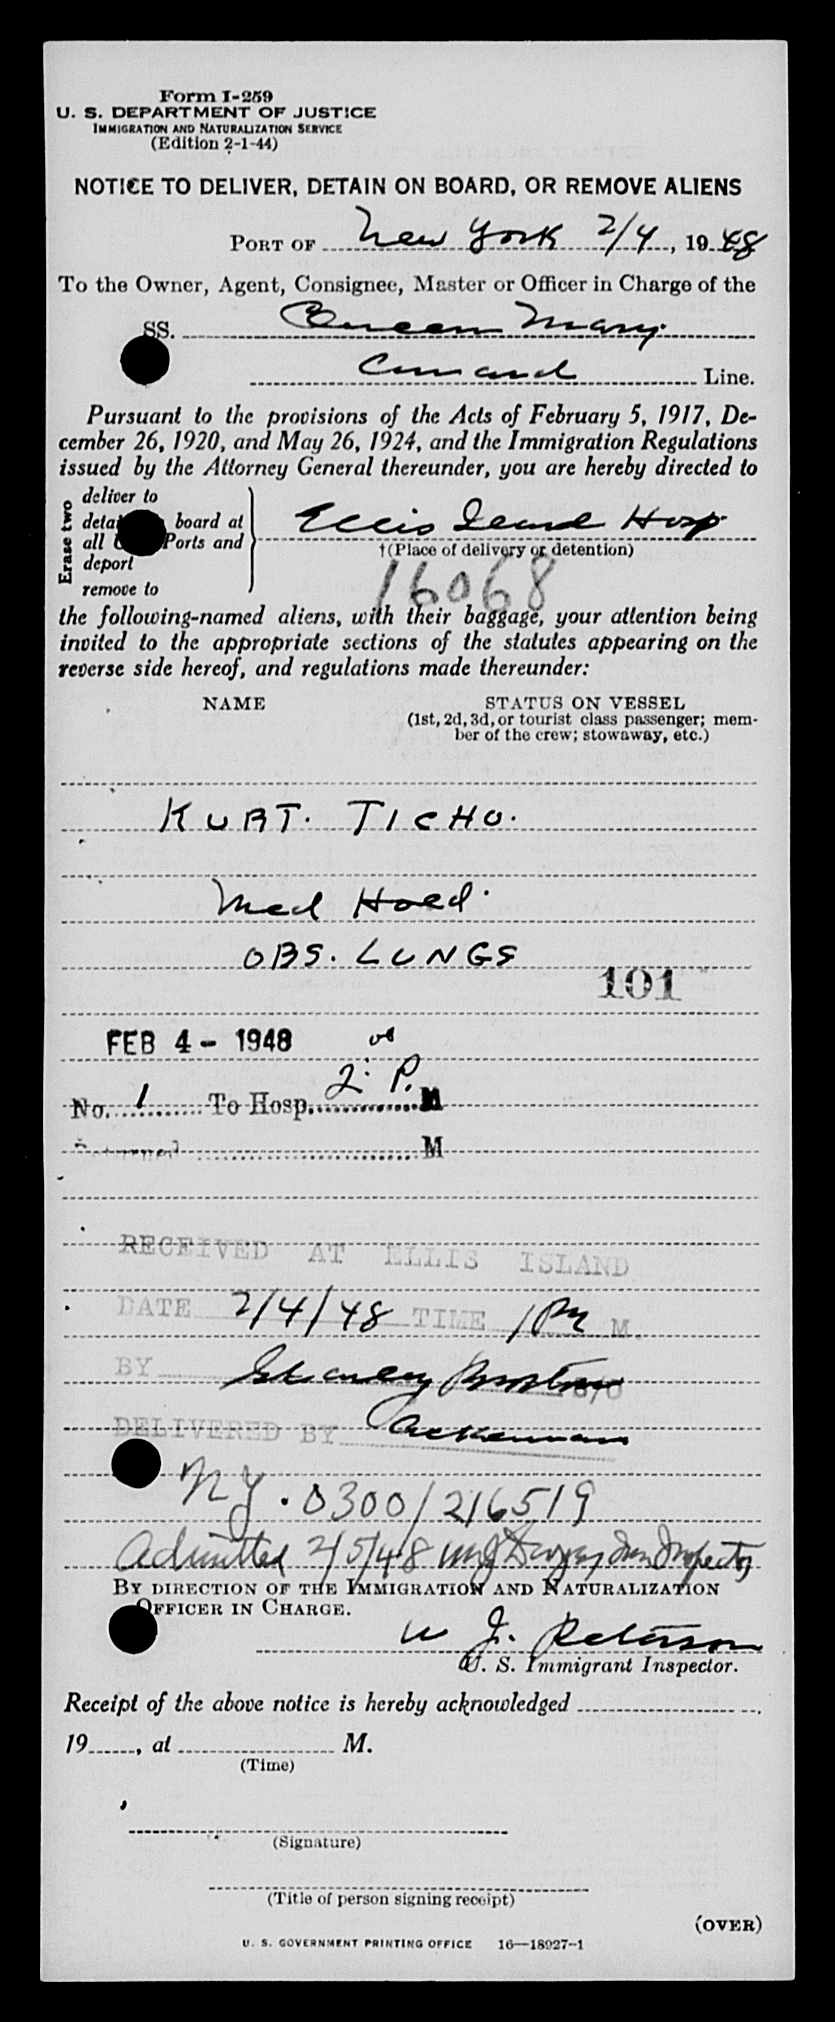 Form I-259
U. S. DEPARTMENT OF JUSTICE
IMMIGRATION AND NATURALIZATION SERVICE
(Edition 2-1-44)
NOTICE TO DELIVER, DETAIN ON BOARD, OR REMOVE ALIENS
PORT OF New York 2/4, 1948
To the Owner, Agent, Consignee, Master or Officer in Charge of the
SS. Queen Mary
Cunard Line.
Pursuant to the provisions of the Acts of February 5, 1917, De-
cember 26, 1920, and May 26, 1924, and the Immigration Regulations
issued by the Attorney General thereunder, you are hereby directed to
Erase two
deliver to
board at
all Ports and
deport
remove to
Ellis Island Hosp.
†(Place of delivery or detention)
16068
the following-named aliens, with their baggage, your attention being
invited to the appropriate sections of the statutes appearing on the
reverse side hereof, and regulations made thereunder:
NAME STATUS ON VESSEL
(1st, 2d, 3d, or tourist class passenger; mem-
ber of the crew; stowaway, etc.)
KURT. TICHO.
Med Hold.
OBS. LUNGS
101
FEB 4 - 1948
No. 1 To Hosp. 2 P. M
Returned M
RECEIVED AT ELLIS ISLAND
DATE 2/4/48 TIME 1 PM M.
BY Stanley
DELIVERED BY Ackermann
NY. 0300/216519
Admitted 2/5/48 Imm Inspector
BY DIRECTION OF THE IMMIGRATION AND NATURALIZATION
OFFICER IN CHARGE.
W. J. Peterson
U. S. Immigrant Inspector.
Receipt of the above notice is hereby acknowledged
19, at M.
(Time)
(Signature)
(Title of person signing receipt)
(OVER)
U. S. GOVERNMENT PRINTING OFFICE 16—18927-1